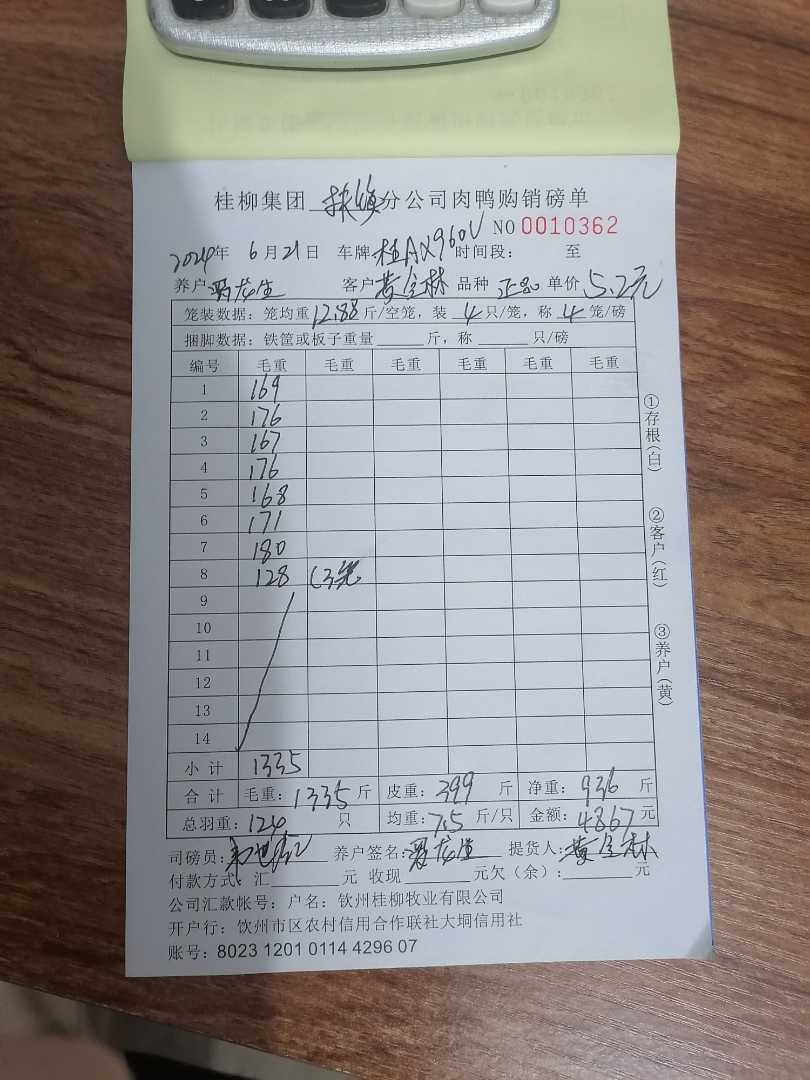 桂柳集团 扶绥 分公司肉鸭购销磅单
NO 0010362
2024年 6月21日 车牌 桂AX960V 时间段: 至
养户 客户 黄全林 品种 正品 单价 5.2元
笼装数据:笼均重12.88斤/空笼,装 4 只/笼,称 4 笼/磅
捆脚数据:铁筐或板子重量 斤,称 只/磅
编号 毛重 毛重 毛重 毛重 毛重 毛重
1 169
2 176
3 167
4 176
5 168
6 171
7 180
8 128 (3笼
9
10
11
12
13
14
小计 1335
合计 毛重:1335斤 皮重:399 斤 净重:936 斤
总羽重:124 只 均重:7.5 斤/只 金额:4867元
司磅员: 养户签名: 提货人:黄全林
付款方式:汇 元 收现 元欠(余): 元
公司汇款帐号:户名:钦州桂柳牧业有限公司
开户行:钦州市区农村信用合作联社大垌信用社
账号:8023 1201 0114 4296 07
①存根(白)
②客户(红)
③养户(黄)